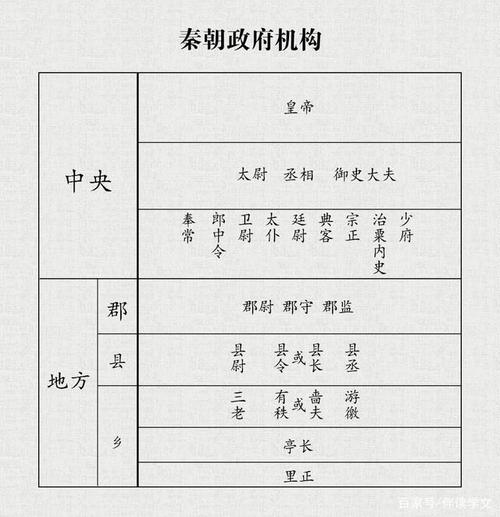 秦朝政府机构
中央
皇帝
太尉 丞相 御史大夫
奉常 郎中令 卫尉 太仆 廷尉 典客 宗正 治粟内史 少府
地方
郡
郡尉 郡守 郡监
县
县尉 县令或县长 县丞
乡
三老 有秩或啬夫 游徽
亭长
里正
百家号/伴读学文